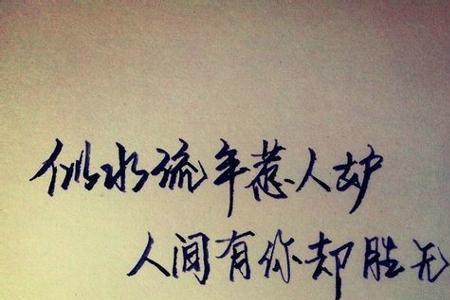 似水流年惹人妒
人间有你却胜无